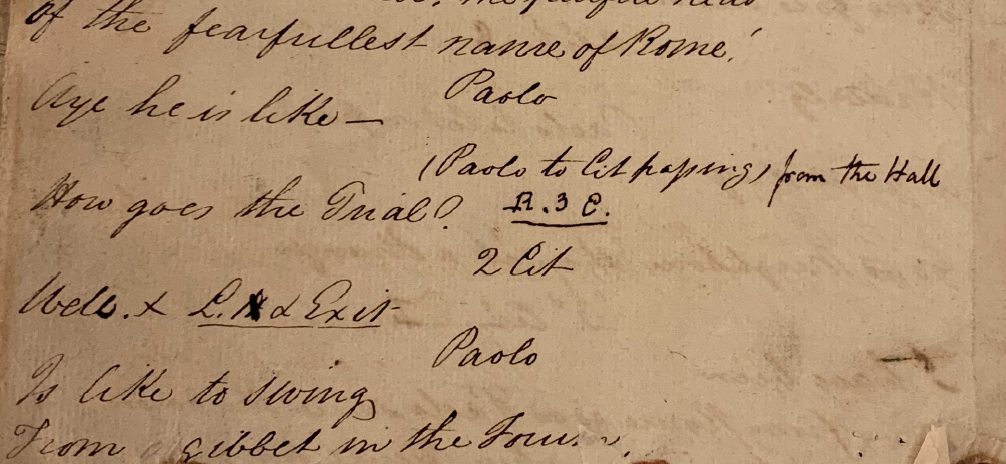 the fearful head
of the fearfullest name of Rome!
Paolo
Aye he is like —
(Paolo to Cit passing) from the Hall
How goes the Trial? R. 3 E.
2 Cit
Well. x L. & Exit
Paolo
Is like to swing
From a gibbet in the